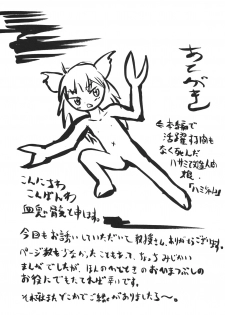 あとがき
本編で
活躍
なく死んだ
ハサミ
娘
「ハミちゃん」
こんにちわ
こんばんわ
と申します。
今回もお誘いしていただいて ありがとうございます。
ページ数も少なかったこともあって、ちょっとみじかい
まんがでしたが、ほんのひとときのおひまつぶしの
お役にでもたてれば幸いです。
それではまたどこかでご縁がありましたら〜。